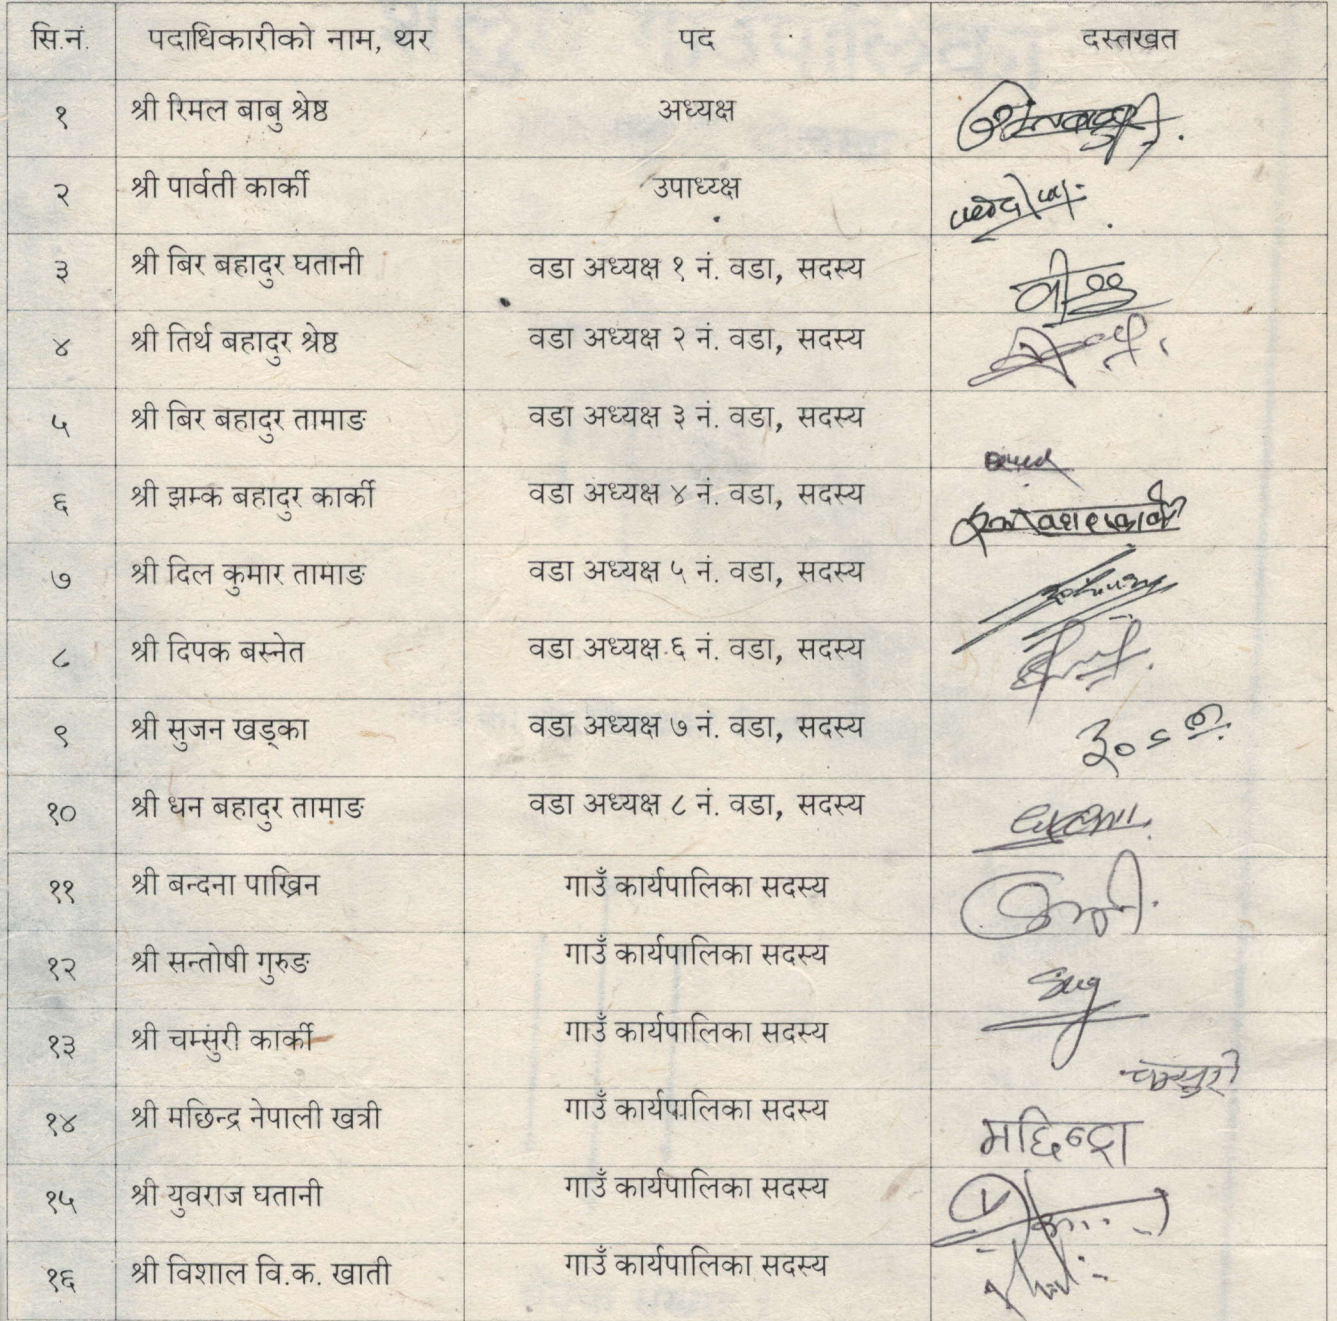 सि.नं. पदाधिकारीको नाम, थर पद दस्तखत
१ श्री रिमल बाबु श्रेष्ठ अध्यक्ष
२ श्री पार्वती कार्की उपाध्यक्ष
३ श्री बिर बहादुर घतानी वडा अध्यक्ष १ नं. वडा, सदस्य
४ श्री तिर्थ बहादुर श्रेष्ठ वडा अध्यक्ष २ नं. वडा, सदस्य
५ श्री बिर बहादुर तामाङ वडा अध्यक्ष ३ नं. वडा, सदस्य
६ श्री झम्क बहादुर कार्की वडा अध्यक्ष ४ नं. वडा, सदस्य
७ श्री दिल कुमार तामाङ वडा अध्यक्ष ५ नं. वडा, सदस्य
८ श्री दिपक बस्नेत वडा अध्यक्ष ६ नं. वडा, सदस्य
९ श्री सुजन खड्का वडा अध्यक्ष ७ नं. वडा, सदस्य
१० श्री धन बहादुर तामाङ वडा अध्यक्ष ८ नं. वडा, सदस्य
११ श्री बन्दना पाख्रिन गाउँ कार्यपालिका सदस्य
१२ श्री सन्तोषी गुरुङ गाउँ कार्यपालिका सदस्य
१३ श्री चम्सुरी कार्की गाउँ कार्यपालिका सदस्य चम्सुरी
१४ श्री मछिन्द्र नेपाली खत्री गाउँ कार्यपालिका सदस्य मछिन्द्रा
१५ श्री युवराज घतानी गाउँ कार्यपालिका सदस्य
१६ श्री विशाल वि.क. खाती गाउँ कार्यपालिका सदस्य